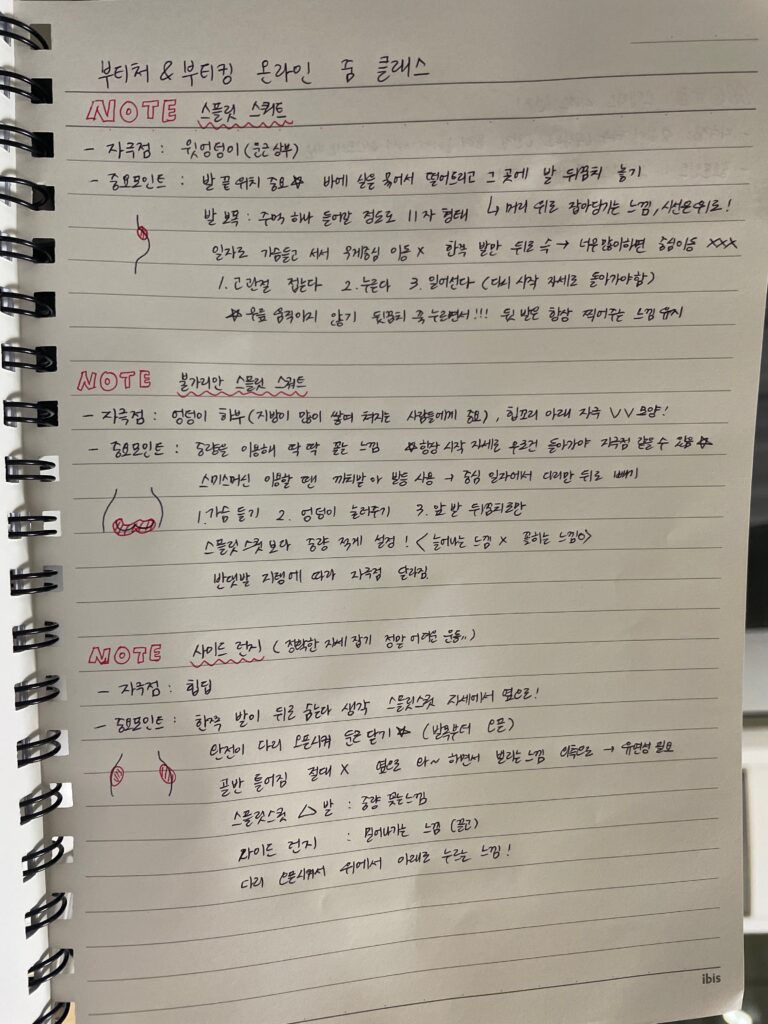 부티처 & 부티킹 온라인 줌 클래스
NOTE 스플릿 스쿼트
- 자극점 : 윗엉덩이 (둔근상부)
- 중요포인트 : 발 끝 위치 중요☆ 바에 실을 묶어서 떨어뜨리고 그 곳에 발 뒤꿈치 놓기
발 보폭 : 주먹 하나 들어갈 정도로 11자 형태 ↳ 머리 위로 잡아당기는 느낌, 시선은 위로!
일자로 가슴들고 서서 무게중심 이동 X 한쪽 발만 뒤로 슥 → 너무 많이하면 중심이동 XXX
1. 고관절 접는다 2. 누른다 3. 일어선다 (다시 시작 자세로 돌아가야함)
☆ 무릎 움직이지 않기 뒤꿈치 쭉 누르면서!!! 뒷 발은 항상 찍어주는 느낌 유지
NOTE 불가리안 스플릿 스쿼트
- 자극점 : 엉덩이 하부 (지방이 많이 쌓여 쳐지는 사람들에게 중요), 힙꼬리 아래 자극 ∨∨ 모양!
- 중요포인트 : 중량을 이용해 딱 딱 꽂는 느낌 ☆항상 시작 자세로 무조건 돌아가야 자극점 같을 수 있음☆
스미스머신 이용할 땐 까치발 아 발등 사용 → 중심 일자에서 다리만 뒤로 빼기
1. 가슴 들기 2. 엉덩이 눌러주기 3. 앞 발 뒤꿈치로만
스플릿스쿼 보다 중량 적게 설정! <늘어나는 느낌 X 꽂히는 느낌O>
반댓발 지렛에 따라 자극점 달라짐
NOTE 사이드 런지 (정확한 자세 잡기 정말 어려운 운동..)
- 자극점 : 힙딥
- 중요포인트 : 한쪽 발이 뒤로 숨는다 생각 스플릿스쿼 자세에서 옆으로!
완전이 다리 오픈시켜 둔근 닫기☆ (발목부터 오픈)
골반 틀어짐 절대 X 옆으로 와~ 하면서 벌리는 느낌 이쪽으로 → 유연성 필요
스플릿스쿼 △ 발 : 중량 꽂는느낌
사이드 런지 : 밀어나가는 느낌 (끌고)
다리 오픈시켜서 위에서 아래로 누르는 느낌!
ibis